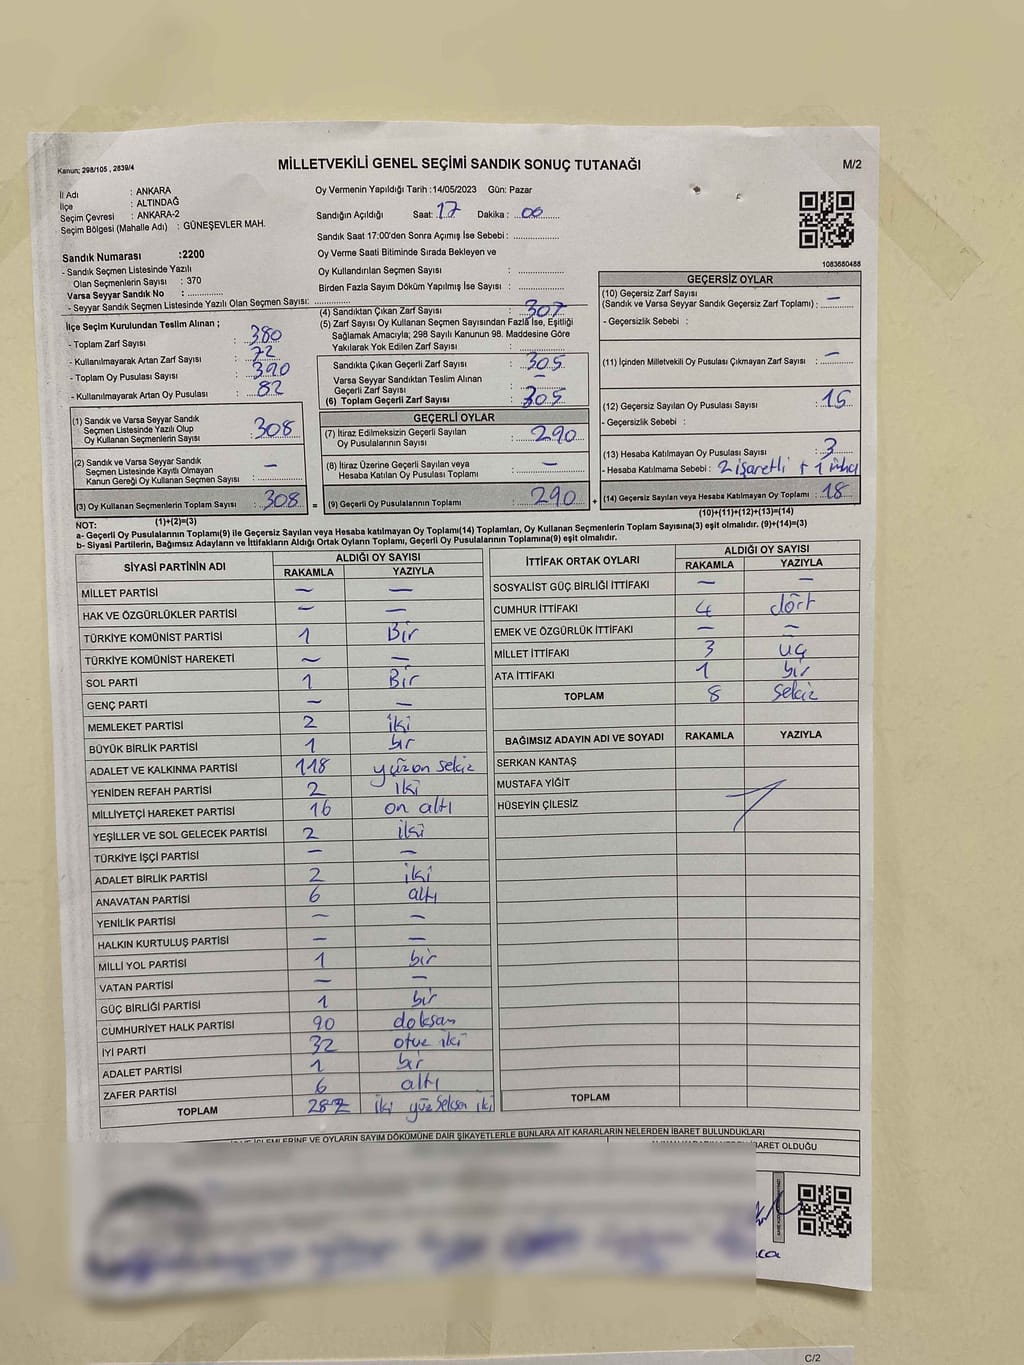 Kanun; 298/105 , 2839/4
MİLLETVEKİLİ GENEL SEÇİMİ SANDIK SONUÇ TUTANAĞI
M/2
İl Adı : ANKARA
İlçe : ALTINDAĞ
Seçim Çevresi : ANKARA-2
Seçim Bölgesi (Mahalle Adı) : GÜNEŞEVLER MAH.
Oy Vermenin Yapıldığı Tarih :14/05/2023 Gün: Pazar
Sandığın Açıldığı Saat: 17 Dakika : 00
Sandık Saat 17:00'den Sonra Açımış İse Sebebi :
Oy Verme Saati Bitiminde Sırada Bekleyen ve
Oy Kullandırılan Seçmen Sayısı :
Birden Fazla Sayım Döküm Yapılmış İse Sayısı :
1083680488
Sandık Numarası :2200
- Sandık Seçmen Listesinde Yazılı
Olan Seçmenlerin Sayısı : 370
Varsa Seyyar Sandık No :
- Seyyar Sandık Seçmen Listesinde Yazılı Olan Seçmen Sayısı:
İlçe Seçim Kurulundan Teslim Alınan ;
- Toplam Zarf Sayısı : 380
- Kullanılmayarak Artan Zarf Sayısı : 72
- Toplam Oy Pusulası Sayısı : 390
- Kullanılmayarak Artan Oy Pusulası : 82
(1) Sandık ve Varsa Seyyar Sandık
Seçmen Listesinde Yazılı Olup
Oy Kullanan Seçmenlerin Sayısı : 308
(2) Sandık ve Varsa Seyyar Sandık
Seçmen Listesinde Kayıtlı Olmayan
Kanun Gereği Oy Kullanan Seçmen Sayısı : —
(3) Oy Kullanan Seçmenlerin Toplam Sayısı : 308 =
(1)+(2)=(3)
(4) Sandıktan Çıkan Zarf Sayısı : 307
(5) Zarf Sayısı Oy Kullanan Seçmen Sayısından Fazla İse, Eşitliği
Sağlamak Amacıyla; 298 Sayılı Kanunun 98. Maddesine Göre
Yakılarak Yok Edilen Zarf Sayısı :
Sandıkta Çıkan Geçerli Zarf Sayısı : 305
Varsa Seyyar Sandıktan Teslim Alınan
Geçerli Zarf Sayısı : —
(6) Toplam Geçerli Zarf Sayısı : 305
GEÇERLİ OYLAR
(7) İtiraz Edilmeksizin Geçerli Sayılan
Oy Pusulalarının Sayısı : 290
(8) İtiraz Üzerine Geçerli Sayılan veya
Hesaba Katılan Oy Pusulası Toplamı : —
(9) Geçerli Oy Pusulalarının Toplamı : 290 +
GEÇERSİZ OYLAR
(10) Geçersiz Zarf Sayısı
(Sandık ve Varsa Seyyar Sandık Geçersiz Zarf Toplamı) : —
- Geçersizlik Sebebi :
(11) İçinden Milletvekili Oy Pusulası Çıkmayan Zarf Sayısı : —
(12) Geçersiz Sayılan Oy Pusulası Sayısı : 15
- Geçersizlik Sebebi :
(13) Hesaba Katılmayan Oy Pusulası Sayısı : 3
- Hesaba Katılmama Sebebi : 2 işaretli + 1 imha
(14) Geçersiz Sayılan veya Hesaba Katılmayan Oy Toplamı : 18
(10)+(11)+(12)+(13)=(14)
NOT:
a- Geçerli Oy Pusulalarının Toplamı(9) ile Geçersiz Sayılan veya Hesaba katılmayan Oy Toplamı(14) Toplamları, Oy Kullanan Seçmenlerin Toplam Sayısına(3) eşit olmalıdır. (9)+(14)=(3)
b- Siyasi Partilerin, Bağımsız Adayların ve İttifakların Aldığı Ortak Oyların Toplamı, Geçerli Oy Pusulalarının Toplamına(9) eşit olmalıdır.
SİYASİ PARTİNİN ADI ALDIĞI OY SAYISI
RAKAMLA YAZIYLA
MİLLET PARTİSİ — —
HAK VE ÖZGÜRLÜKLER PARTİSİ — —
TÜRKİYE KOMÜNİST PARTİSİ 1 Bir
TÜRKİYE KOMÜNİST HAREKETİ — —
SOL PARTİ 1 Bir
GENÇ PARTİ — —
MEMLEKET PARTİSİ 2 iki
BÜYÜK BİRLİK PARTİSİ 1 bir
ADALET VE KALKINMA PARTİSİ 118 yüzon sekiz
YENİDEN REFAH PARTİSİ 2 iki
MİLLİYETÇİ HAREKET PARTİSİ 16 on altı
YEŞİLLER VE SOL GELECEK PARTİSİ 2 iki
TÜRKİYE İŞÇİ PARTİSİ — —
ADALET BİRLİK PARTİSİ 2 iki
ANAVATAN PARTİSİ 6 altı
YENİLİK PARTİSİ — —
HALKIN KURTULUŞ PARTİSİ — —
MİLLİ YOL PARTİSİ 1 bir
VATAN PARTİSİ — —
GÜÇ BİRLİĞİ PARTİSİ 1 bir
CUMHURİYET HALK PARTİSİ 90 doksan
İYİ PARTİ 32 otuz iki
ADALET PARTİSİ 1 bir
ZAFER PARTİSİ 6 altı
TOPLAM 282 iki yüz seksen iki
İTTİFAK ORTAK OYLARI ALDIĞI OY SAYISI
RAKAMLA YAZIYLA
SOSYALİST GÜÇ BİRLİĞİ İTTİFAKI — —
CUMHUR İTTİFAKI 4 dört
EMEK VE ÖZGÜRLÜK İTTİFAKI — —
MİLLET İTTİFAKI 3 üç
ATA İTTİFAKI 1 bir
TOPLAM 8 sekiz
BAĞIMSIZ ADAYIN ADI VE SOYADI RAKAMLA YAZIYLA
SERKAN KANTAŞ
MUSTAFA YİĞİT
HÜSEYİN ÇİLESİZ
TOPLAM
İŞLEMLERİNE VE OYLARIN SAYIM DÖKÜMÜNE DAİR ŞİKAYETLERLE BUNLARA AİT KARARLARIN NELERDEN İBARET BULUNDUKLARI
İBARET OLDUĞU
C/2